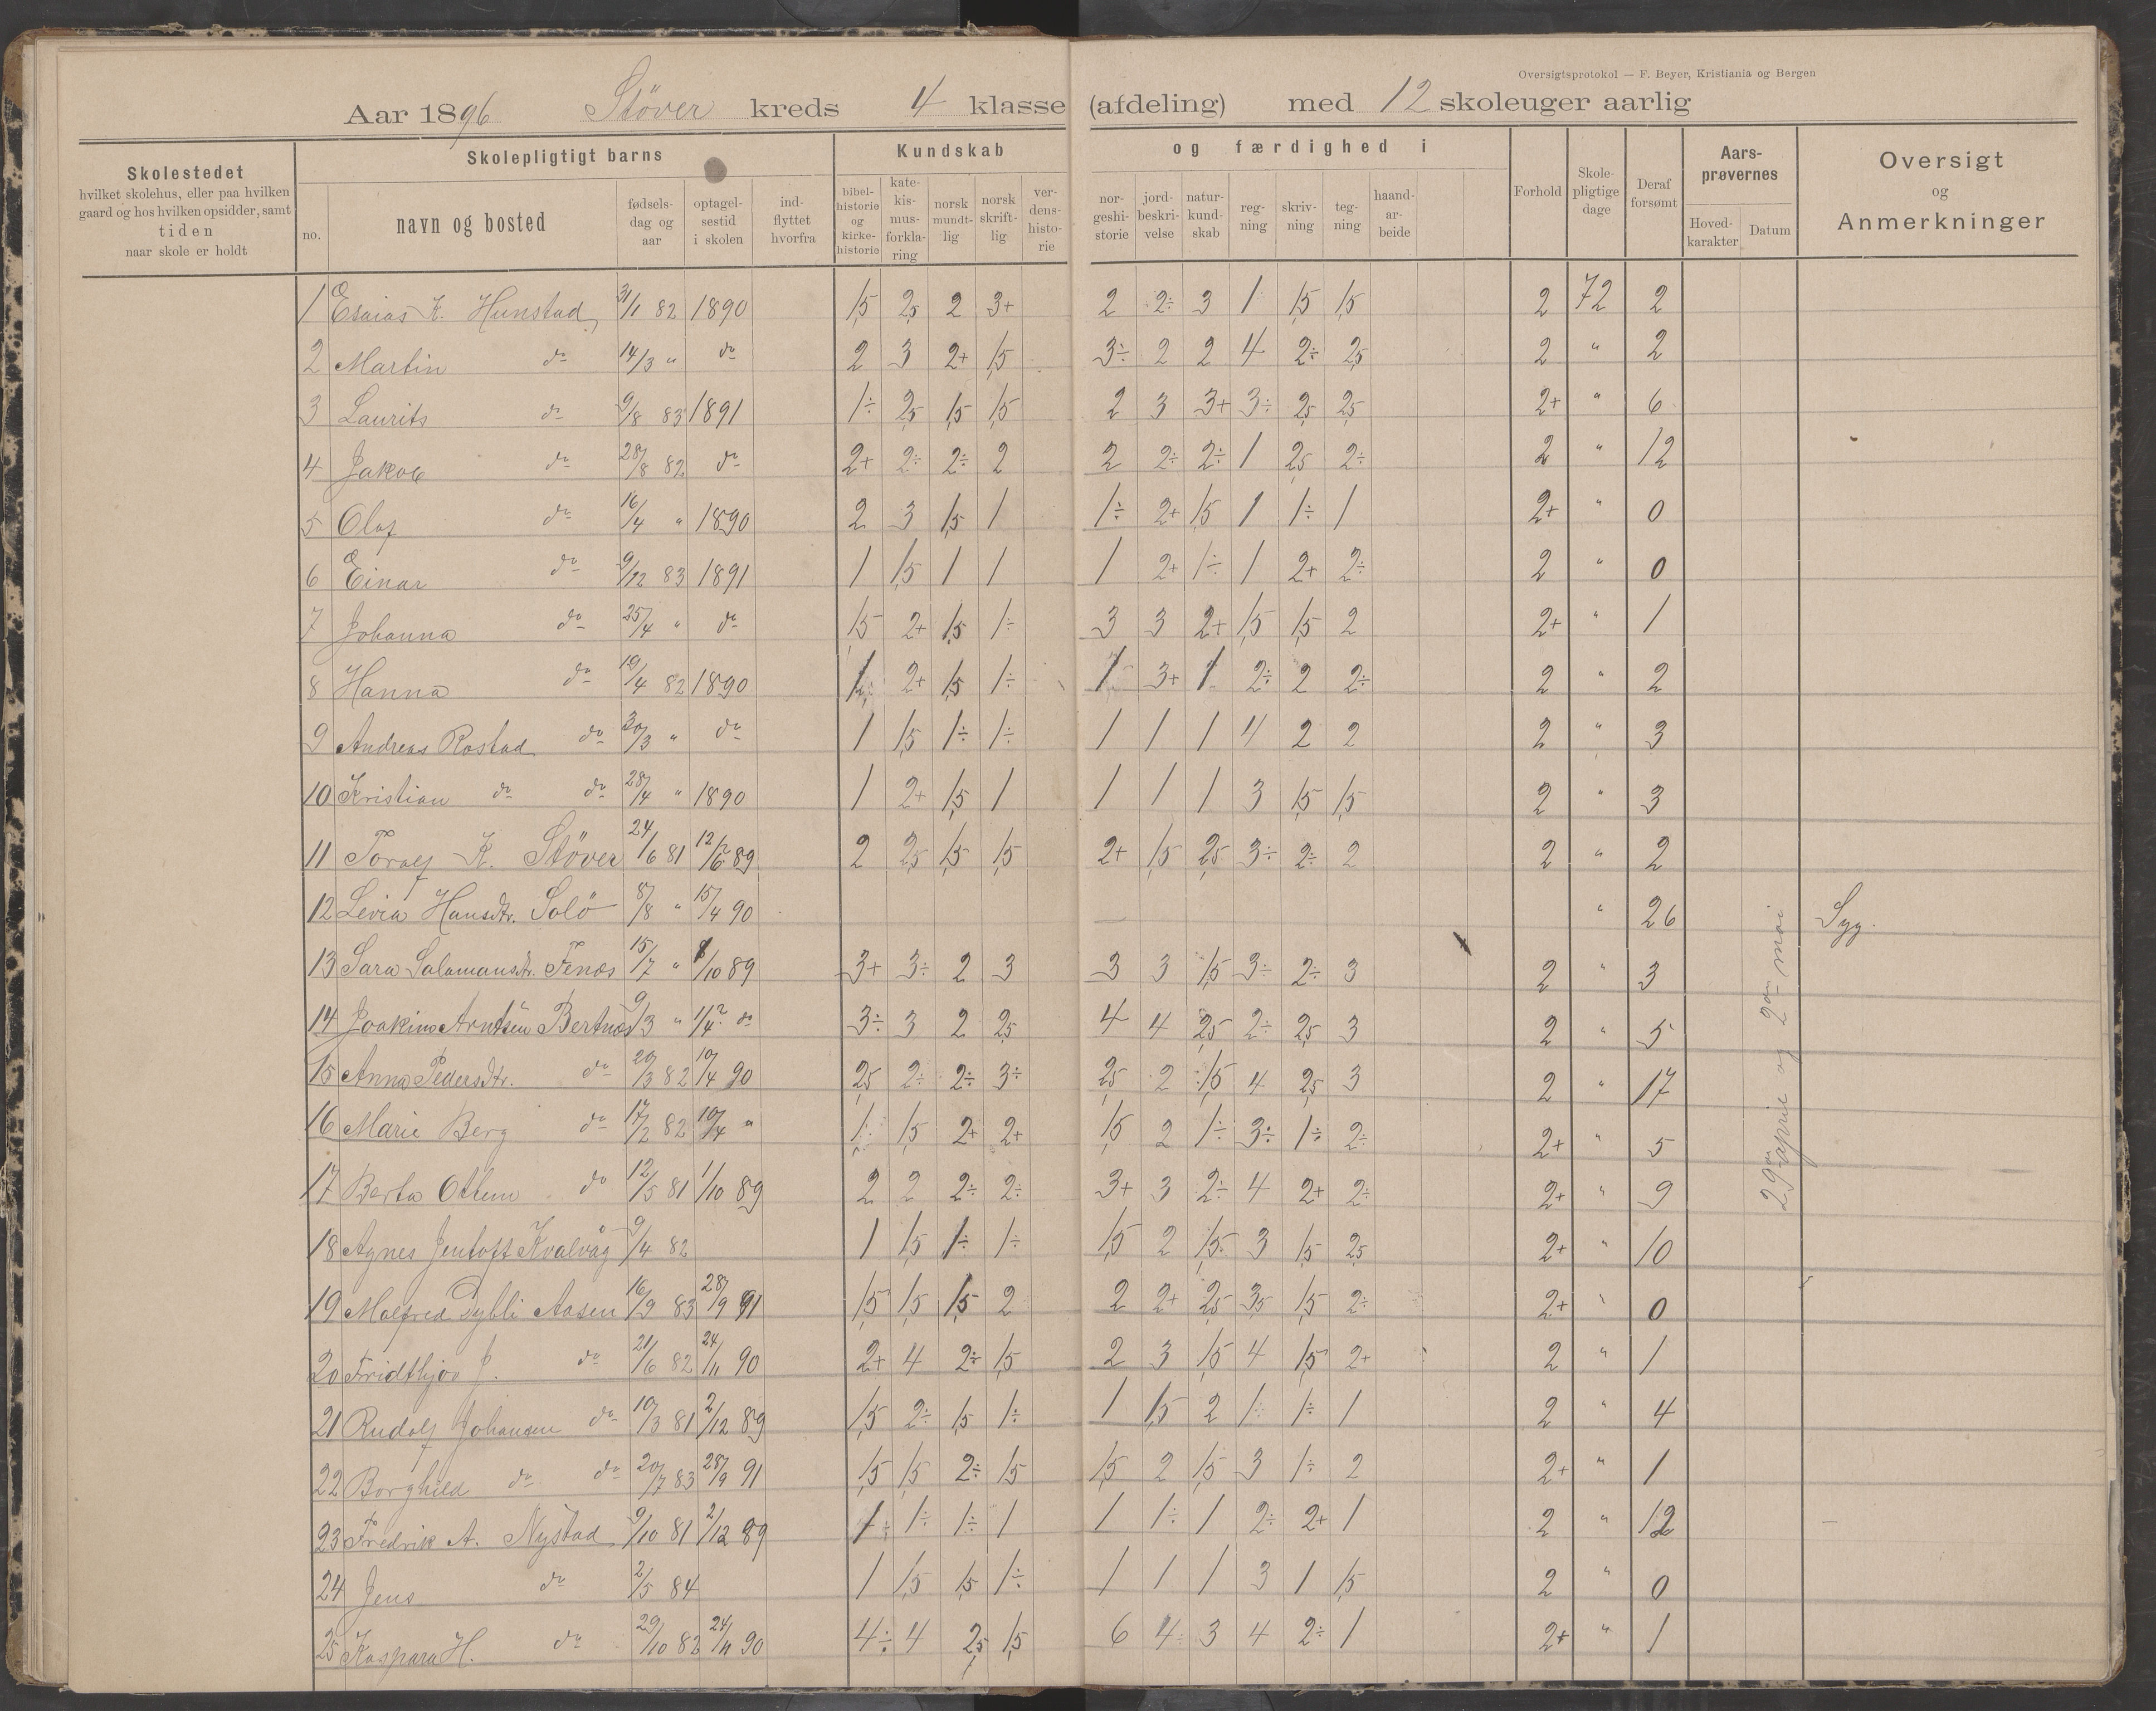 Oversigtsprotokol — F. Beyer, Kristiania og Bergen
Aar 1896 Støver kreds 4 klasse (afdeling) med 12 skoleuger aarlig
Skolestedet
hvilket skolehus, eller paa hvilken
gaard og hos hvilken opsidder, samt
tiden
naar skole er holdt
Skolepligtigt barns
no.
navn og bosted
fødsels-
dag og
aar
optagel-
sestid
i skolen
ind-
flyttet
hvorfra
Kundskab og færdighed i
bibel-
historie
og
kirke-
historie
kate-
kis-
mus-
forkla-
ring
norsk
mundt-
lig
norsk
skrift-
lig
ver-
dens-
histo-
rie
nor-
geshi-
storie
jord-
beskri-
velse
natur-
kund-
skab
reg-
ning
skriv-
ning
teg-
ning
haand-
ar-
beide
Forhold
Skole-
pligtige
dage
Deraf
forsømt
Aars-
prøvernes
Hoved-
karakter
Datum
Oversigt
og
Anmerkninger
1 Esaias K. Hunstad 31/1 82 1890 1,5 2,5 2 3+ 2 2÷ 3 1 1,5 1,5 2 72 2
2 Martin do 14/3 " do 2 3 2+ 1,5 3÷ 2 2 4 2÷ 2,5 2 " 2
3 Laurits do 9/8 83 1891 1÷ 2,5 1,5 1,5 2 3 3+ 3÷ 2,5 2,5 2+ " 6
4 Jakob do 28/8 82 do 2+ 2÷ 2÷ 2 2 2÷ 2÷ 1 2,5 2÷ 2 " 12
5 Olaf do 16/4 " 1890 2 3 1,5 1 1÷ 2+ 1,5 1 1÷ 1 2+ " 0
6 Einar do 9/12 83 1891 1 1,5 1 1 1 2+ 1÷ 1 2+ 2÷ 2 " 0
7 Johanna do 25/4 " do 1,5 2+ 1,5 1÷ 3 3 2+ 1,5 1,5 2 2+ " 1
8 Hanna do 19/4 82 1890 1 2+ 1,5 1÷ 1 3+ 1 2÷ 2 2÷ 2 " 2
9 Andreas Rostad do 30/3 " do 1 1,5 1÷ 1÷ 1 1 1 4 2 2 2 " 3
10 Kristian do do 28/4 " 1890 1 2+ 1,5 1 1 1 1 3 1,5 1,5 2 " 3
11 Toralf K. Støver 24/6 81 12/6 89 2 2,5 1,5 1,5 2+ 1,5 2,5 3÷ 2÷ 2 2 " 2
12 Levia Hansdtr. Solö 8/8 " 15/4 90 " 26 Syg.
13 Sara Salamansdtr. Fenes 15/7 " /10 89 3+ 3÷ 2 3 3 3 1,5 3÷ 2÷ 3 2 " 3
14 Joakim Arntsen Bertnæs 9/3 " 1/4? do 3÷ 3 2 2,5 4 4 2,5 2÷ 2,5 3 2 " 5
15 Anna Pedersdtr. do 20/3 82 10/4 90 2,5 2÷ 2÷ 3÷ 2,5 2 1,5 4 2,5 3 2 " 17
16 Marie Berg do 17/2 82 10/4 " 1÷ 1,5 2+ 2+ 1,5 2 1÷ 3÷ 1÷ 2÷ 2+ " 5
17 Berta Ottem do 12/5 81 1/10 89 2 2 2÷ 2÷ 3+ 3 2÷ 4 2+ 2÷ 2+ " 9
18 Agnes Jentoft Kvalvåg 9/4 82 1 1,5 1÷ 1÷ 1,5 2 1,5 3 1,5 2,5 2+ " 10
19 Malfred Aasen 16/9 83 28/9 91 1,5 1,5 1,5 2 2 2+ 2,5 3,5 1,5 2÷ 2+ " 0
20 Fridthjov J. do 21/6 82 24/11 90 2+ 4 2÷ 1,5 2 3 1,5 4 1,5 2+ 2 " 1
21 Rudolf Johansen do 10/3 81 2/12 89 1,5 2÷ 1,5 1÷ 1 1,5 2 1÷ 1÷ 1 2 " 4
22 Borghild do do 20/7 83 28/9 91 1,5 1,5 2÷ 1,5 1,5 2 1,5 3 1÷ 2 2+ " 1
23 Fredrik A. Nystad 9/10 81 2/12 89 1÷ 1÷ 1÷ 1 1 1÷ 1 2÷ 2+ 1 2 " 12
24 Jens do 2/5 84 1 1,5 1,5 1÷ 1 1 1 3 1 1,5 2 " 0
25 Kaspara H. do 29/10 82 24/11 90 4÷ 4 2,5 1,5 6 4÷ 3 4 2÷ 1 2+ " 1
29de april og 2den mai